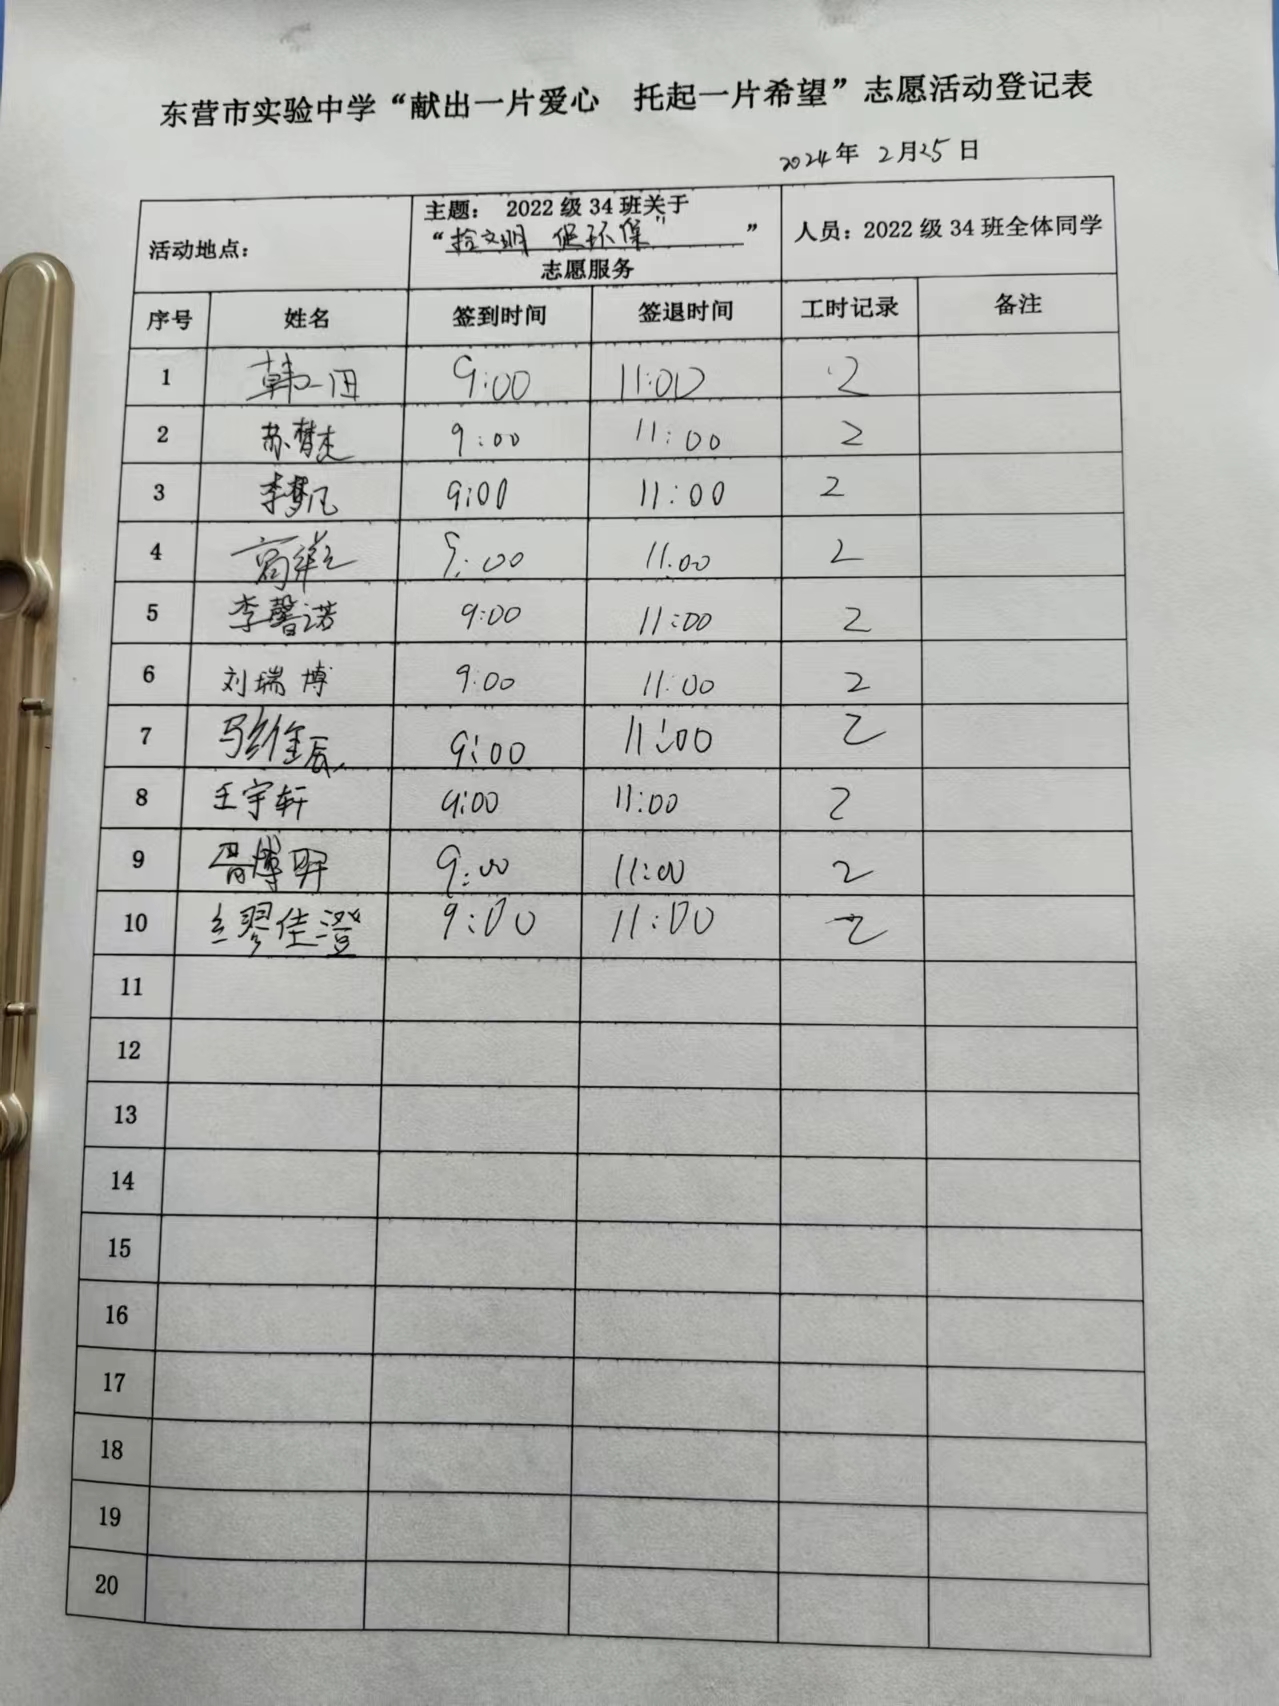 东营市实验中学“献出一片爱心 托起一片希望”志愿活动登记表
2024年 2月25日
活动地点：
主题： 2022级34班关于
“拾文明 促环保” ”
志愿服务
人员：2022级34班全体同学
序号 姓名 签到时间 签退时间 工时记录 备注
1 韩一田 9:00 11:00 2
2 苏梦杰 9:00 11:00 2
3 李梦凡 9:00 11:00 2
4 9:00 11:00 2
5 李馨诺 9:00 11:00 2
6 刘瑞博 9:00 11:00 2
7 9:00 11:00 2
8 王宇轩 9:00 11:00 2
9 9:00 11:00 2
10 缪佳澄 9:00 11:00 2
11
12
13
14
15
16
17
18
19
20